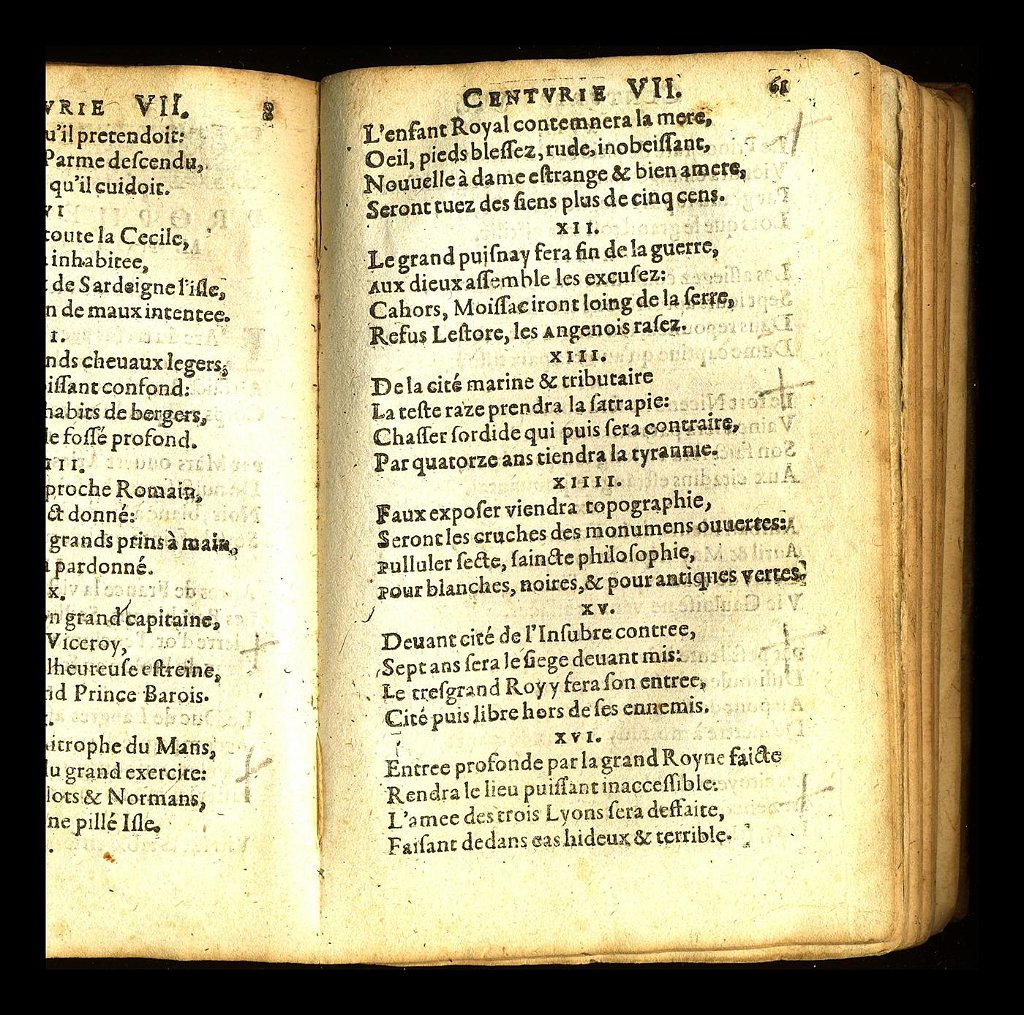 VRIE VII.
u'il pretendoit:
Parme deſcendu,
qu'il cuidoit.
VI
toute la Cecile,
inhabitee,
de Sardeigne l'iſle,
n de maux intentee.
I.
nds cheuaux legers,
iſſant confond:
habits de bergers,
le foſſé profond.
III.
proche Romain,
ct donné:
grands prins à main,
pardonné.
X.
n grand capitaine,
Viceroy,
lheureuſe eſtreine,
d Prince Barois.
itrophe du Mans,
u grand exercite:
lots & Normans,
ne pillé Iſle.
CENTVRIE VII. 61
L'enfant Royal contemnera la mere,
Oeil, pieds bleſſez, rude, inobeiſſant,
Nouuelle à dame eſtrange & bien amere,
Seront tuez des ſiens plus de cinq cens.
XII.
Le grand puiſnay fera fin de la guerre,
Aux dieux aſſemble les excuſez:
Cahors, Moiſſac iront loing de la ſerre,
Refus Leſtore, les Angenois raſez.
XIII.
De la cité marine & tributaire
La teſte raze prendra la ſatrapie:
Chaſſer ſordide qui puis ſera contraire,
Par quatorze ans tiendra la tyrannie.
XIIII.
Faux expoſer viendra topographie,
Seront les cruches des monumens ouuertes:
Pulluler ſecte, ſaincte philoſophie,
Pour blanches, noires, & pour antiques vertes.
XV.
Deuant cité de l'Inſubre contree,
Sept ans ſera le ſiege deuant mis:
Le treſgrand Roy y fera ſon entree,
Cité puis libre hors de ſes ennemis.
XVI.
Entree profonde par la grand Royne faicte
Rendra le lieu puiſſant inacceſſible:
L'amee des trois Lyons ſera deffaite,
Faiſant dedans cas hideux & terrible.